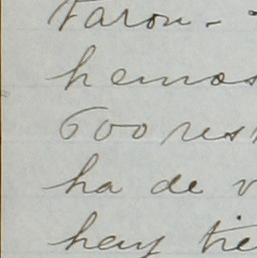 taron -
hemos
600 res
ha de v
hay tie